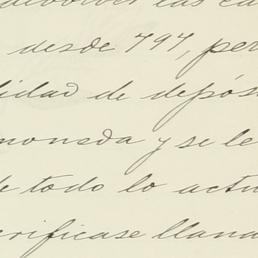 desde 797, per
lidad de depós
moneda y se le
e todo lo actu
erificase llana